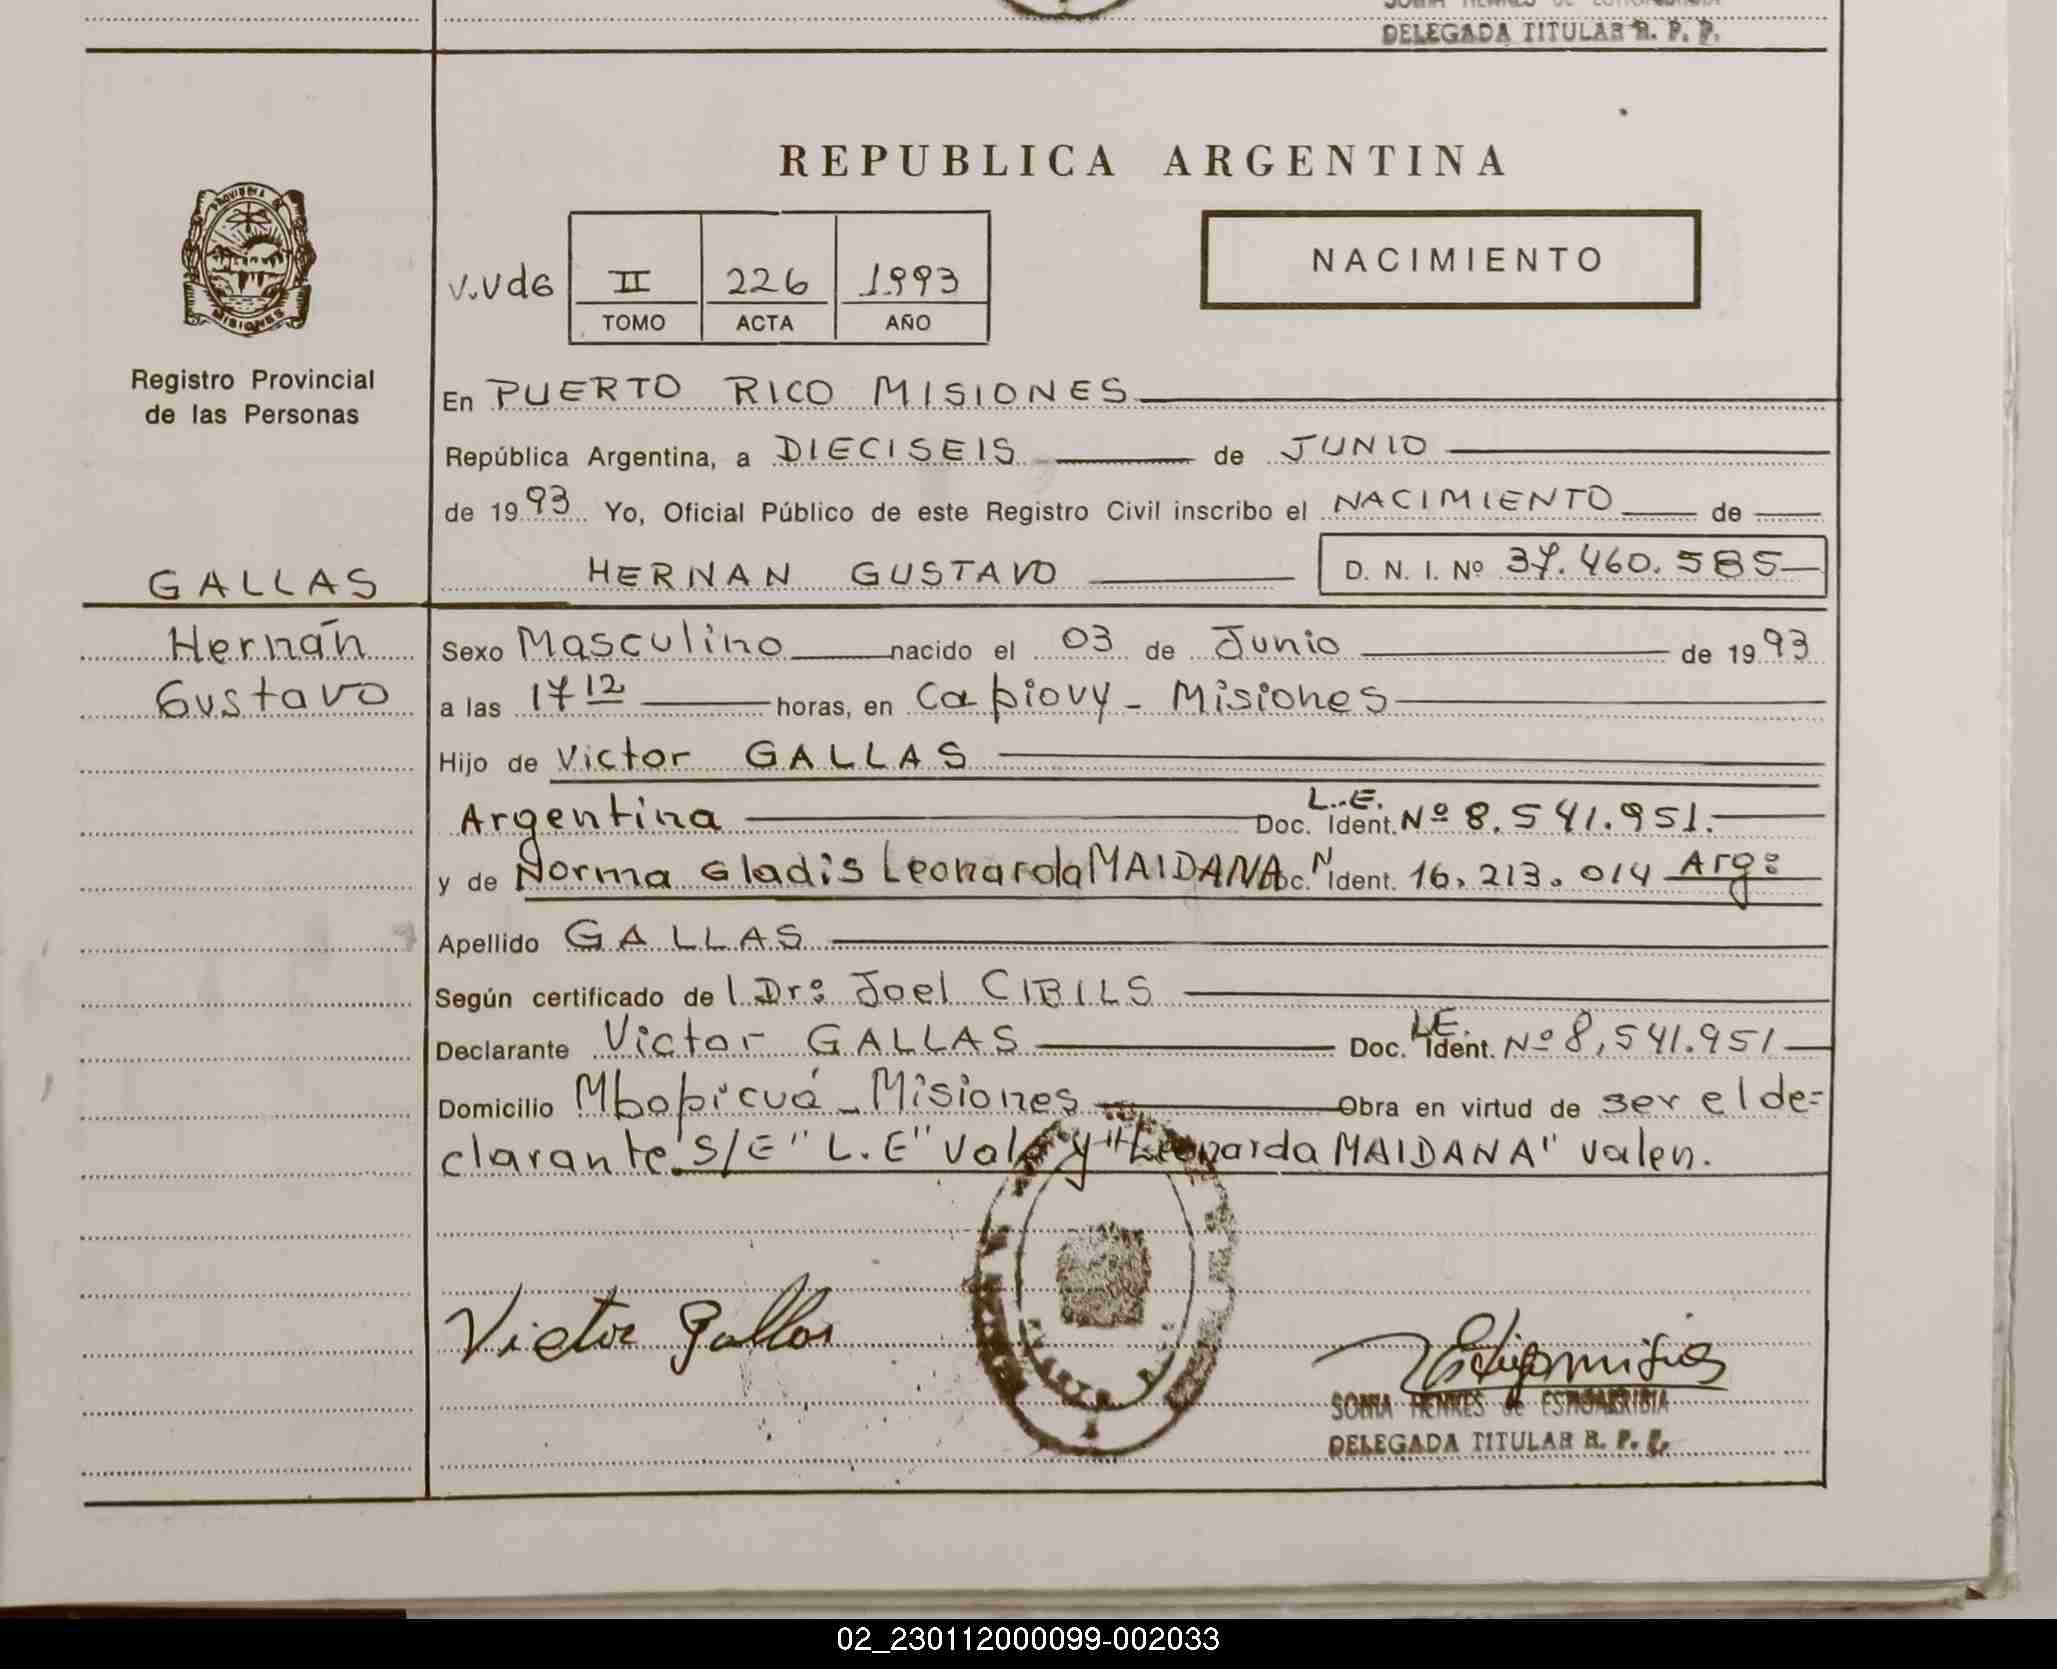 DELEGADA TITULAR R. P. P.
REPUBLICA ARGENTINA
PROVINCIA DE
MISIONES
NACIMIENTO
V.Vd6 II 226 1993
TOMO ACTA AÑO
Registro Provincial
de las Personas
En PUERTO RICO MISIONES
República Argentina, a DIECISEIS de JUNIO
de 1993 Yo, Oficial Público de este Registro Civil inscribo el NACIMIENTO de
GALLAS HERNAN GUSTAVO D. N. I. Nº 37.460.585
Hernán Sexo Masculino nacido el 03 de Junio de 1993
Gustavo a las 17 12 horas, en Capiovy - Misiones
Hijo de Victor GALLAS
Argentina Doc. Ident. L.E. Nº 8.541.951.
y de Norma Gladis Leonarda MAIDANA Doc. N Ident. 16.213.014 Arg:
Apellido GALLAS
Según certificado de l Dr: Joel CIBILS
Declarante Victor GALLAS Doc. Ident. L.E. Nº 8,541.951
Domicilio Mbopicuá - Misiones Obra en virtud de ser el de=
clarante. S/E "L.E" vale y "Leonarda MAIDANA" valen.
Victor Gallas
SONIA HENKES de ESTIGARRIBIA
DELEGADA TITULAR R. P. P.
02_230112000099-002033